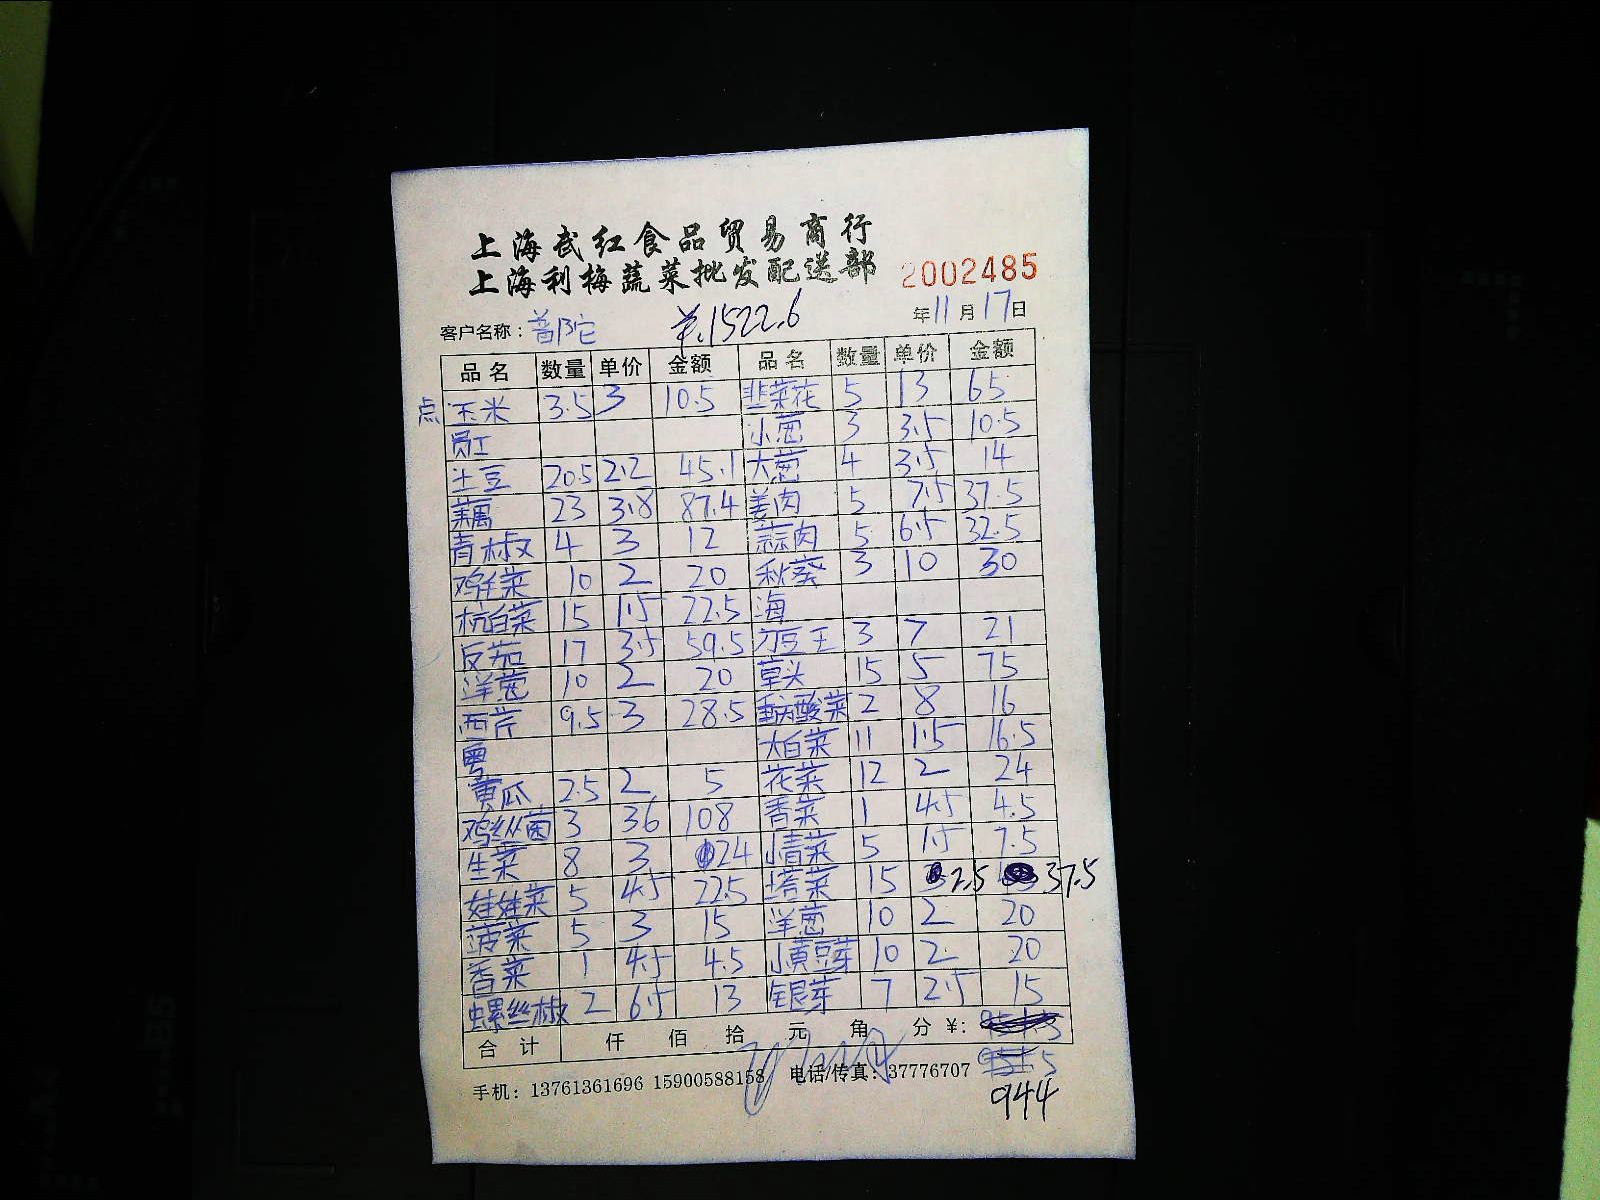 上海武红食品贸易商行
上海利梅蔬菜批发配送部 2002485
客户名称：普陀 ¥.1522.6 年11月17日
品名 数量 单价 金额 品名 数量 单价 金额
点 玉米 3.5 3 10.5 韭菜花 5 13 65
员工 小葱 3 3.5 10.5
土豆 20.5 2.2 45.1 大葱 4 3.5 14
藕 23 3.8 87.4 姜肉 5 7.5 37.5
青椒 4 3 12 蒜肉 5 6.5 32.5
鸡毛菜 10 2 20 秋葵 3 10 30
杭白菜 15 1.5 22.5 海
反茄 17 3.5 59.5 刀豆王 3 7 21
洋葱 10 2 20 草头 15 5 75
西芹 9.5 3 28.5 酸菜 2 8 16
粤 大白菜 11 1.5 16.5
黄瓜 2.5 2 5 花菜 12 2 24
鸡丝菌 3 36 108 香菜 1 4.5 4.5
生菜 8 3 24 小青菜 5 1.5 7.5
娃娃菜 5 4.5 22.5 塔菜 15 2.5 37.5
菠菜 5 3 15 洋葱 10 2 20
香菜 1 4.5 4.5 小黄豆芽 10 2 20
螺丝椒 2 6.5 13 银芽 7 2.5 15
合计 仟 佰 拾 元 角 分 ¥:
手机：13761361696 15900588158 电话/传真：37776707
944